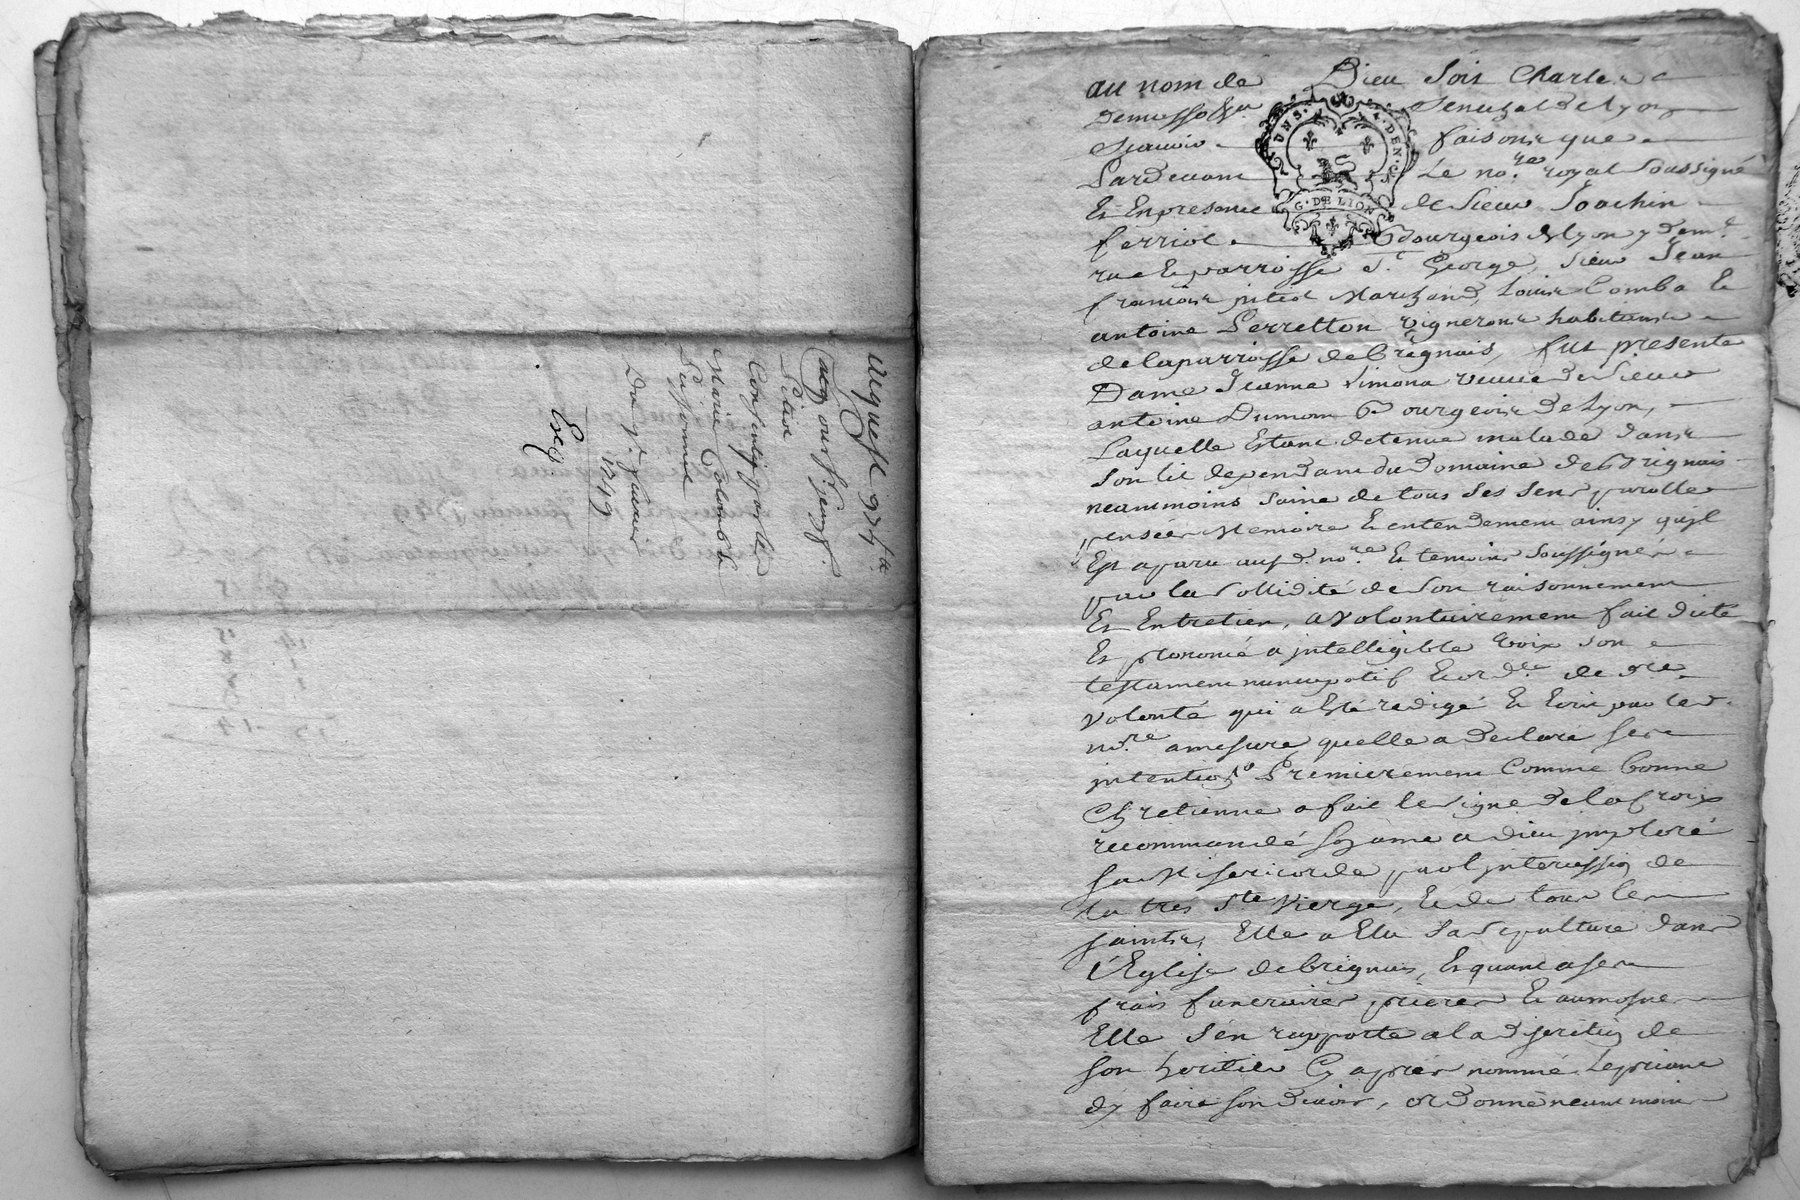 acquest 974ᵗᵗ
Du 9ᵉ. Janvier
1749
Exp
au nom de Dieu Soit Charles
Senechal de Lyon
Scavoir faisons que
Pardevant Le noʳᵉ. royal Soussigné
Et En presence de Sieur Joachin
ferriol Bourgeois de Lyon y demᵗ.
rue Et parroisse Sᵗ. George, Sieur Jean
francois pitiot Marchand, Louis Comba Et
antoine Perretton vignerons habitants
de la parroisse de Brignais, fut presente
Dame Jeanne Simona veuve de Sieur
antoine Dumon Bourgeois de Lyon,
Laquelle Estant detenue malade dans
Son lit dependant du Domaine de Brignais
neantmoins Saine de tous Ses Sens parolle
pensée Memoire Et entendement ainsy qu'il
Est aparu audᵗ. noʳᵉ. Et temoins Soussignés
par la Sollidité de Son raisonnement
Et Entretien, a volontairement fait dicté
Et prononcé a jntelligible voix Son
testament nuncupatif Et ordʳᵉ. de dʳᵉ.
Volonté qui a Esté redigé Et Ecrit par led.
noʳᵉ a mesure quelle a declaré Ses
jntentions Premierement Comme bonne
Chretienne a fait le Signe de la Croix
recommandé Son ame a dieu jmploré
Sa Misericorde par l'jntercession de
la tres Sᵗᵉ Vierge, Et de tous les
Saints, Elle a Elu Sa Sepulture dans
l'Eglise de brignais, Et quant a Ses
frais funeraires prieres Et aumosnes
Elle S'en rapporte a la discretion de
Son heritier Cy aprés nommé Le priant
dy faire Son devoir, ordonne neantmoins
UNS.
4.DEN.
G.DE LION